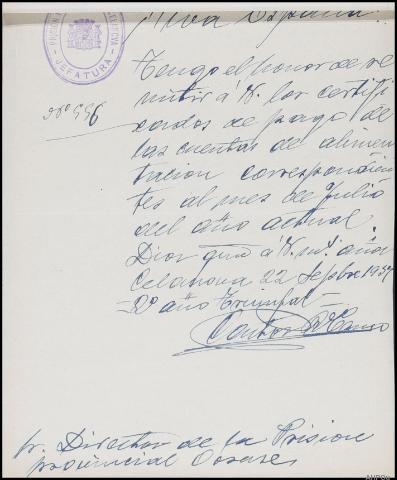 ¡Viva España!!
JEFATURA
Nº 556
Tengo el honor de re
mitir á V. los certifi
cados de pago de
las cuentas de alimen
tacion correspondien
tes al mes de Julio
del año actual.
Dios gue á V. ms. años
Celanova 22 Sepbre 1937
2º año Triunfal
Sr. Director de la Prision
provincial Orense